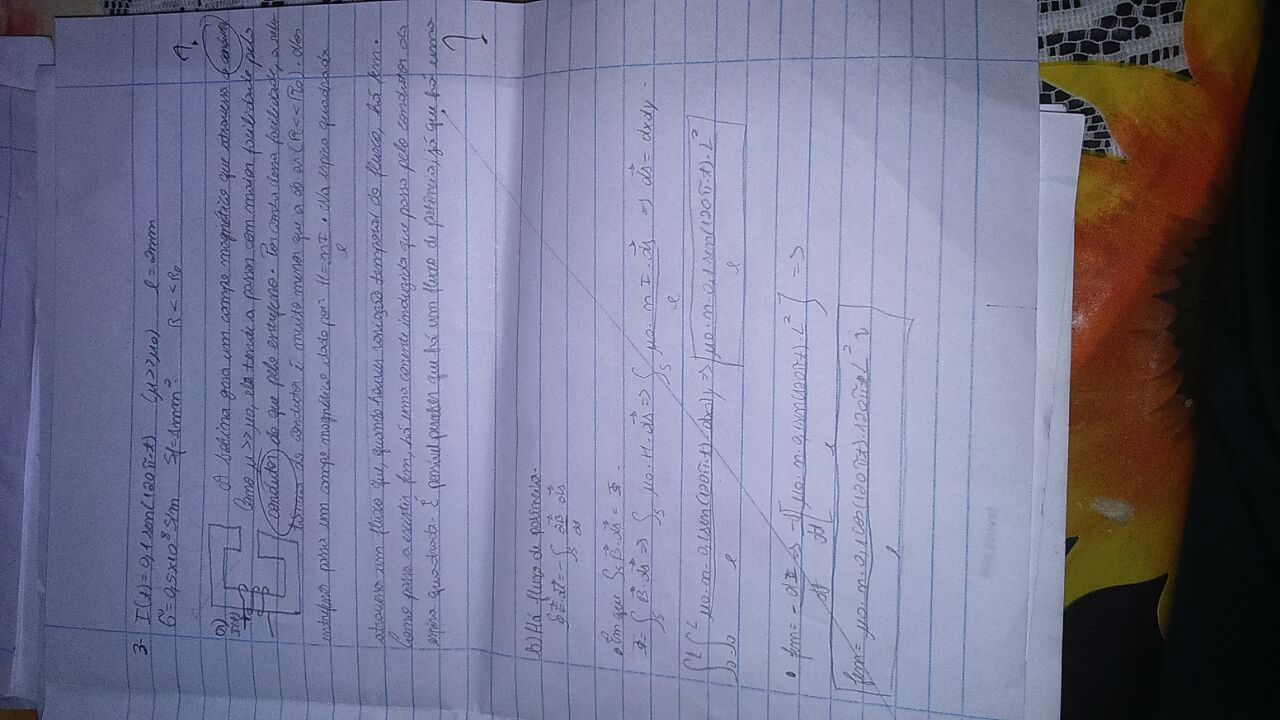 3- I(t)=0,1 sen(120π·t) (μ>>μ0) l=2mm
σ=0,5x10⁸ S/m Sf=1mm². R<<R0
A.
a)
I(t)
A bobina gera um campo magnético que atravessa o condutor
Como μ>>μ0, ele tende a passar com maior facilidade pelo
condutor do que pelo entreferro. Por conta dessa facilidade, a relu-
tância do condutor é muito menor que a do ar (R<<R0). Nos
entreferro passa um campo magnético dado por: H=nI/l. Na espira quadrada
atravessa um fluxo que, quando houver variação temporal do fluxo, há fem.
Como passa a existir fem, há uma corrente induzida que passa pelo condutor da
espira quadrada. É possível perceber que há um fluxo de potência, já que há uma
?
b) Há fluxo de potência.
∮E·dl=-∫s ∂B/dt·ds
• Em que ∫s B·ds=Φ.
Φ=∫s B·ds ⇒ ∫s μ0·H·ds ⇒ ∫s μ0·n I·ds/l ⇒ ds=dxdy.
∫0^L ∫0^L μ0·n·0,1sen(120π·t) dxdy/l ⇒ μ0·n·0,1sen(120π·t)·L²/l
• fem=-dΦ/dt ⇒ -d/dt[μ0·n·0,1sen(120πt)·L²/l] ⇒
fem= μ0·n·0,1cos(120πt)·120π·L²/l V